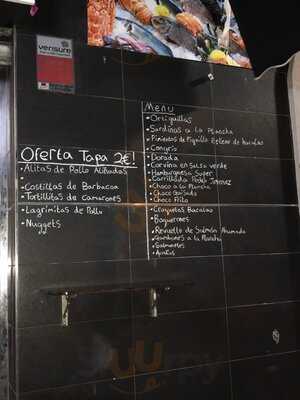 verisure
Oferta Tapa 2€!
• Alitas de Pollo Aliñadas
• Costillas de Barbacoa
• Tortillitas de Camarones
• Lagrimitas de Pollo
• Nuggets
Menu
• Ortiguillas
• Sardinas a La Plancha
• Pimientos de Piquillo Relleno de Bacalao
• Congrio
• Dorada
• Corvina en Salsa verde
• Hamburguesa Super
• Carrillada Pedro Jimenez
• Choco a la Plancha
• Choco Guisado
• Choco Frito
• Croquetas Bacalao
• Boquerones
• Revuelto de Salmón Ahumado
• a la Plancha
• Salmonetes